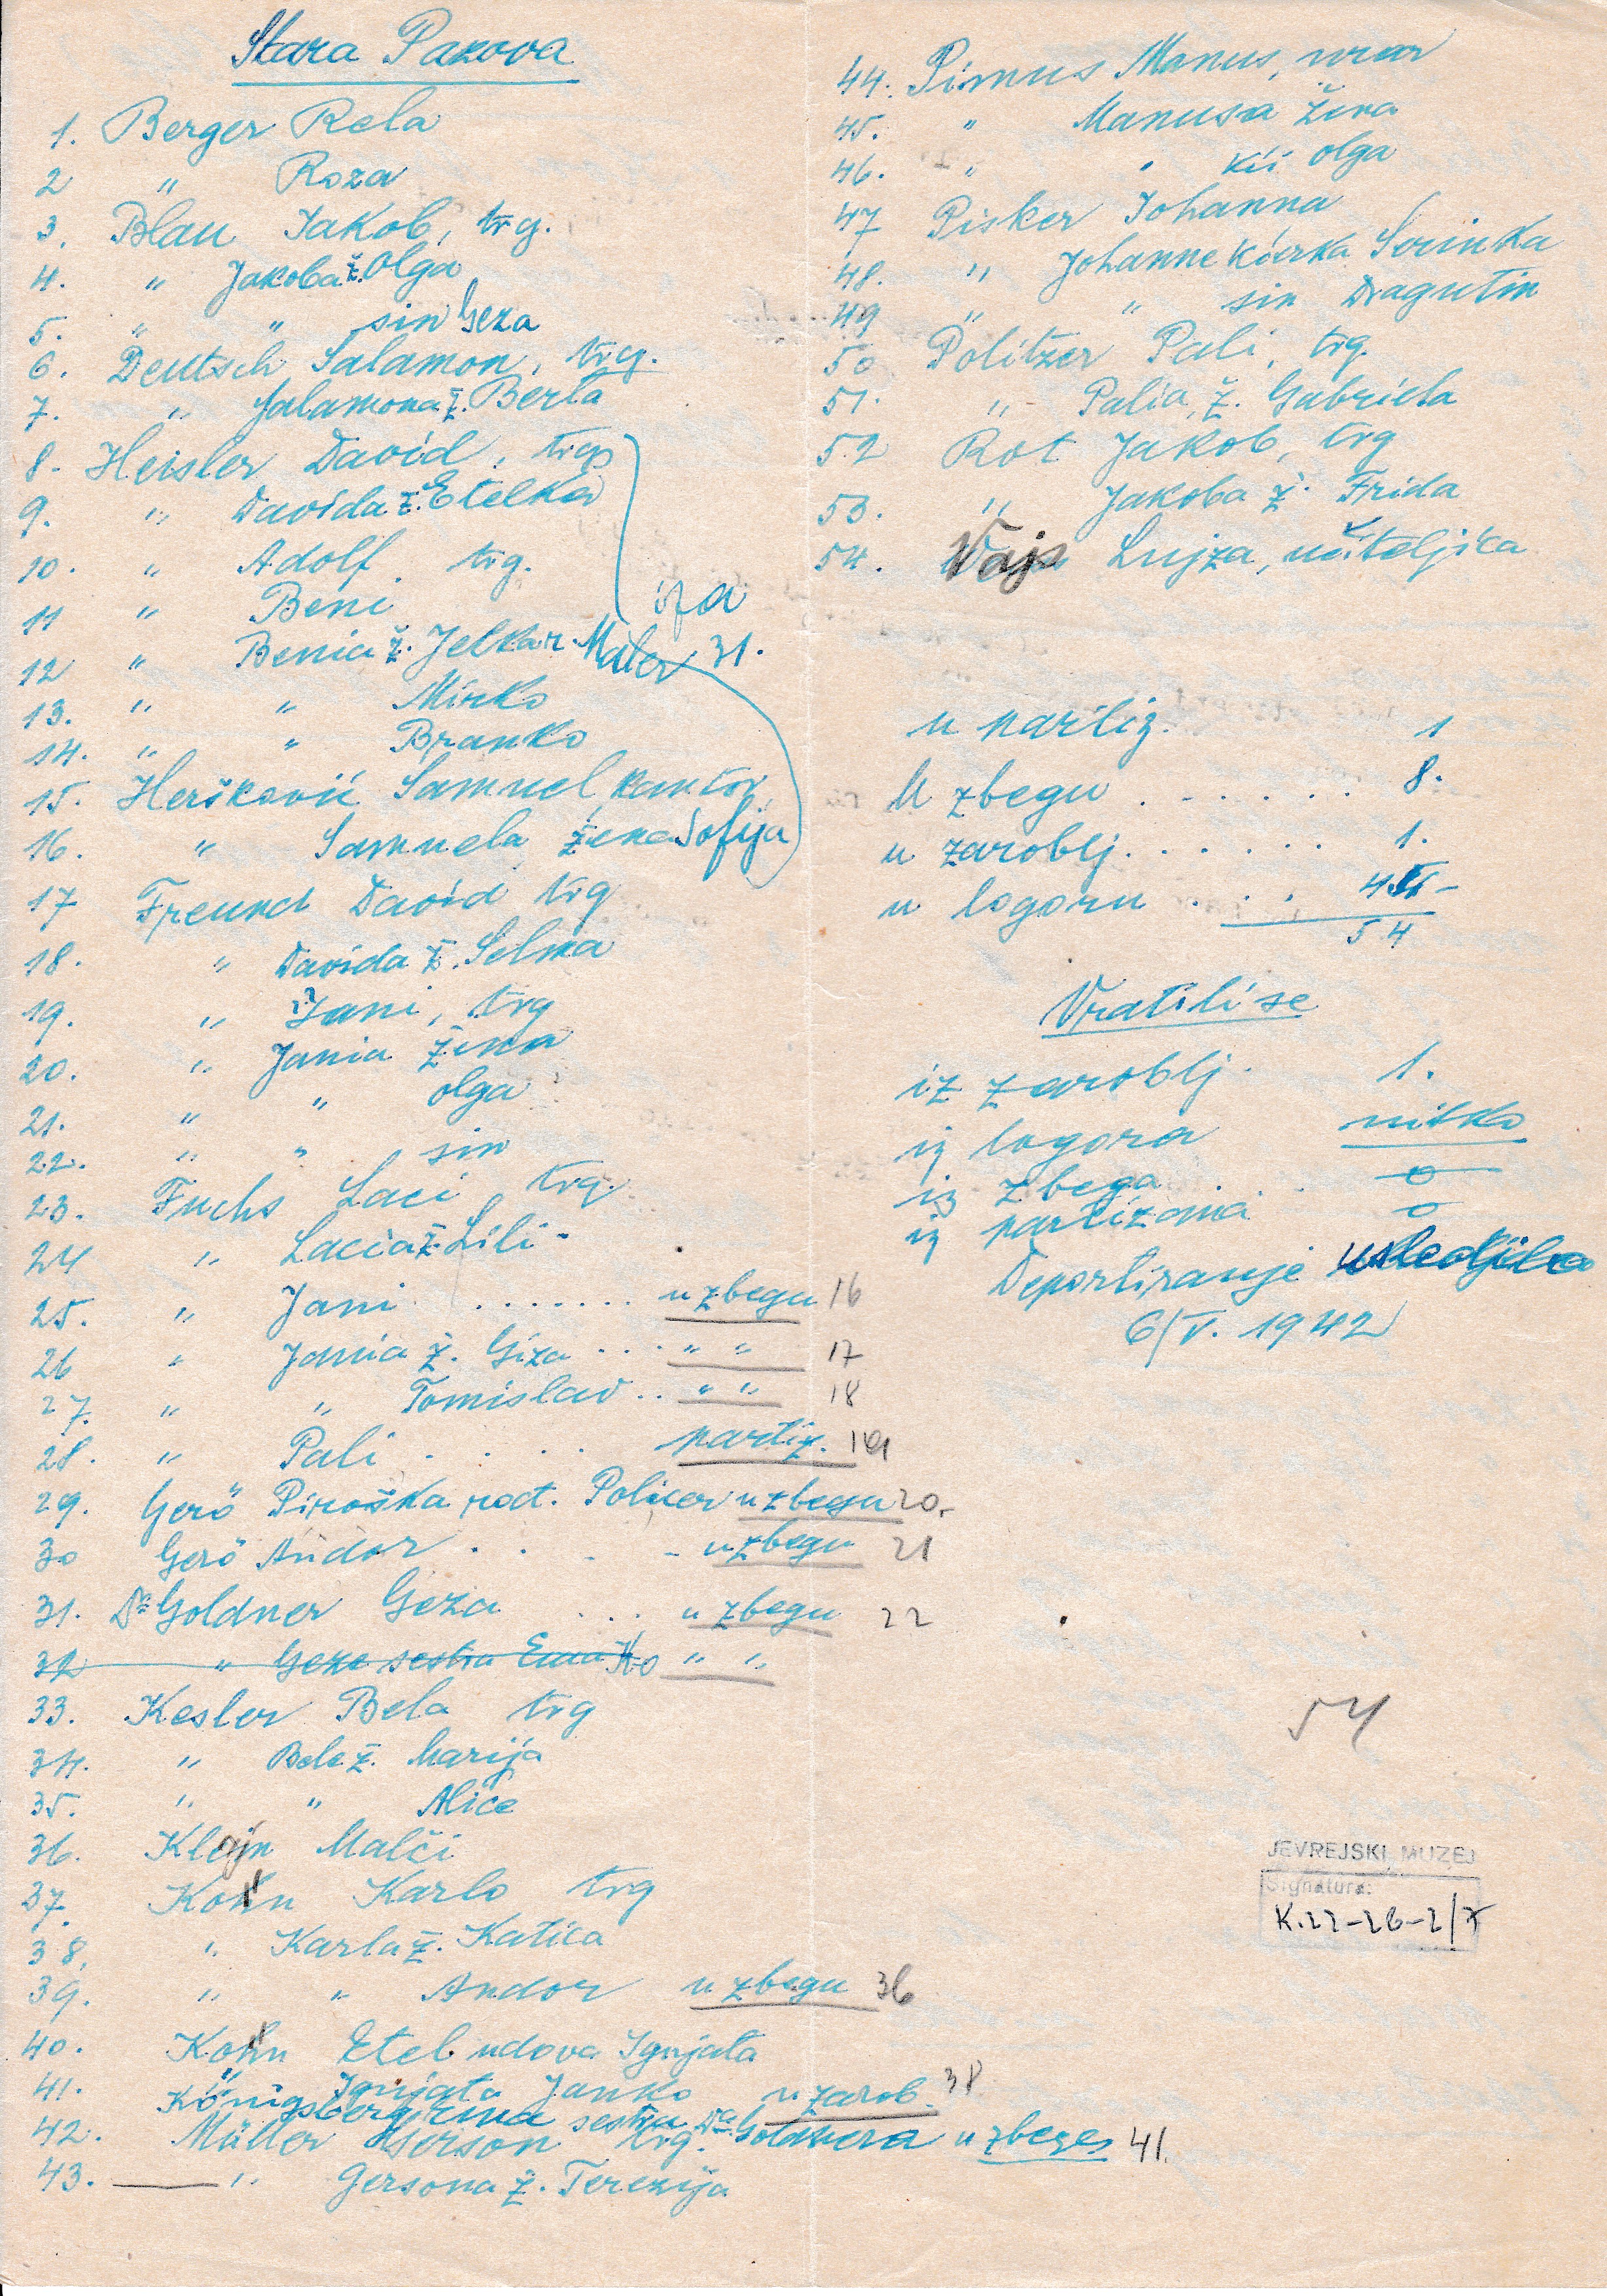 Stara Pazova
1. Berger Rela
2 " Roza
3. Blau Jakob, trg.
4. " Jakoba ž. Olga
5. " " sin Geza
6. Deutsch Salamon, trg.
7. " Salamona ž. Berta
8. Heisler David, trg
9. " Davida ž. Etelka
10. " Adolf, trg.
11 " Beni
iza
12 " Benia ž. Jelka r. Maler 31.
13. " " Mirko
14. " " Branko
15. Heršković Samuel, kantor
16. " Samuela žena Sofija
17 Freund David trg
18. " Davida ž. Selma
19. " Jani, trg
20. " Jania žena
21. " " olga
22. " " sin
23. Fuchs Laci, trg
24 " Lacia ž. Lili
25. " Jani ....... u zbegu 16
26 " Jania ž. Giza .... " " 17
27. " " Tomislav .. " " 18
28. " Pali . . . . partiz. 19
29. Gerö Piroška rođ. Policer u zbegu 20.
30 Gerö Andor . . . - u zbegu 21
31. Dr Goldner Geza ... u zbegu 22
32 " Geze sestra " "
33. Kesler Bela trg
34. " Bele ž. Marija
35. " " Alice
36. Klajn Malči
37. Kon Karlo trg
38. " Karla ž. Katica
39. " " Andor u zbegu 36
40. Kon Etel udova Ignjata
41. " Ignjata Janko u zarob. 38
Königsberg Irma sestra Dr. Goldnera u zbegu 41.
42. Müller Gerson trg.
43. " Gersona ž. Terezija
44. Pimus Manus, urar
45. " Manusa žena
46. " " kći olga
47 Pisker Johanna
48. " Johanne kćerka Serinka
49 " " sin Dragutin
50 Politzer Pali, trg.
51. " Palia, ž. Gabriela
52 Rot Jakob, trg
53. " Jakoba ž. Frida
54. Vajs Lujza, učiteljica
u partiz. 1
U zbegu . . . . . . 8.
u zaroblj. . . . . . 1.
u logoru . . . 44
54
Vratili se
iz zaroblj. 1.
iz logora nitko
iz zbega . . 0
iz partizana 0
Deportiranje usledilo
6/V. 1942
54
JEVREJSKI MUZEJ
Signatura:
K.22-2б-2/7